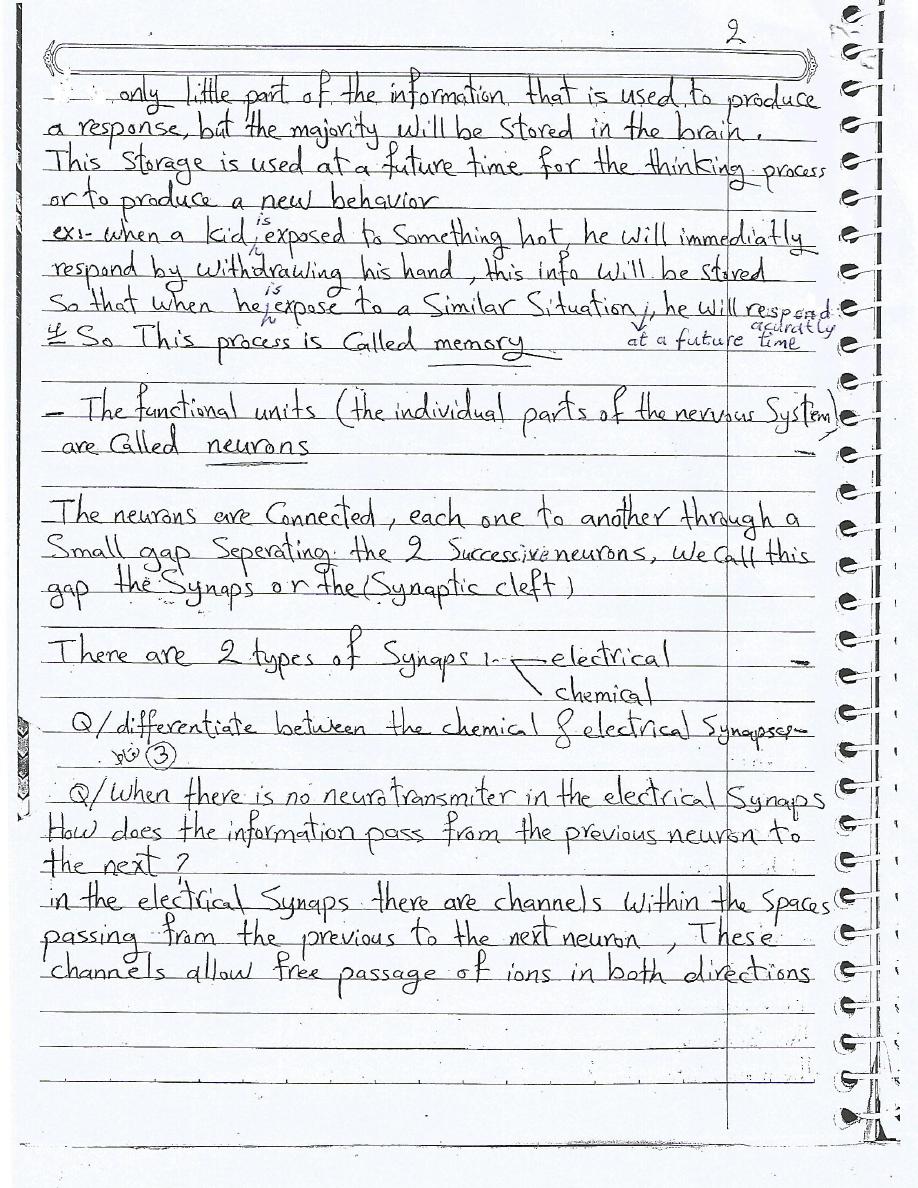 2
only little part of the information that is used to produce
a response, but the majority will be stored in the brain.
This storage is used at a future time for the thinking process
or to produce a new behavior
ex:- when a kid is exposed to something hot, he will immediatly
respond by withdrawing his hand, this info will be stored
So that when he is expose to a similar situation, he will respond
acuratly
at a future time
So This process is called memory
- The functional units (the individual parts of the nervous system)
are called neurons
The neurons are connected, each one to another through a
small gap seperating the 2 successive neurons, we call this
gap the synaps or the (synaptic cleft)
There are 2 types of synaps :- electrical
chemical
Q/ differentiate between the chemical & electrical synapses-
③
Q/ When there is no neurotransmiter in the electrical synaps
How does the information pass from the previous neuron to
the next?
in the electrical synaps there are channels within the spaces
passing from the previous to the next neuron, These
channels allow free passage of ions in both directions